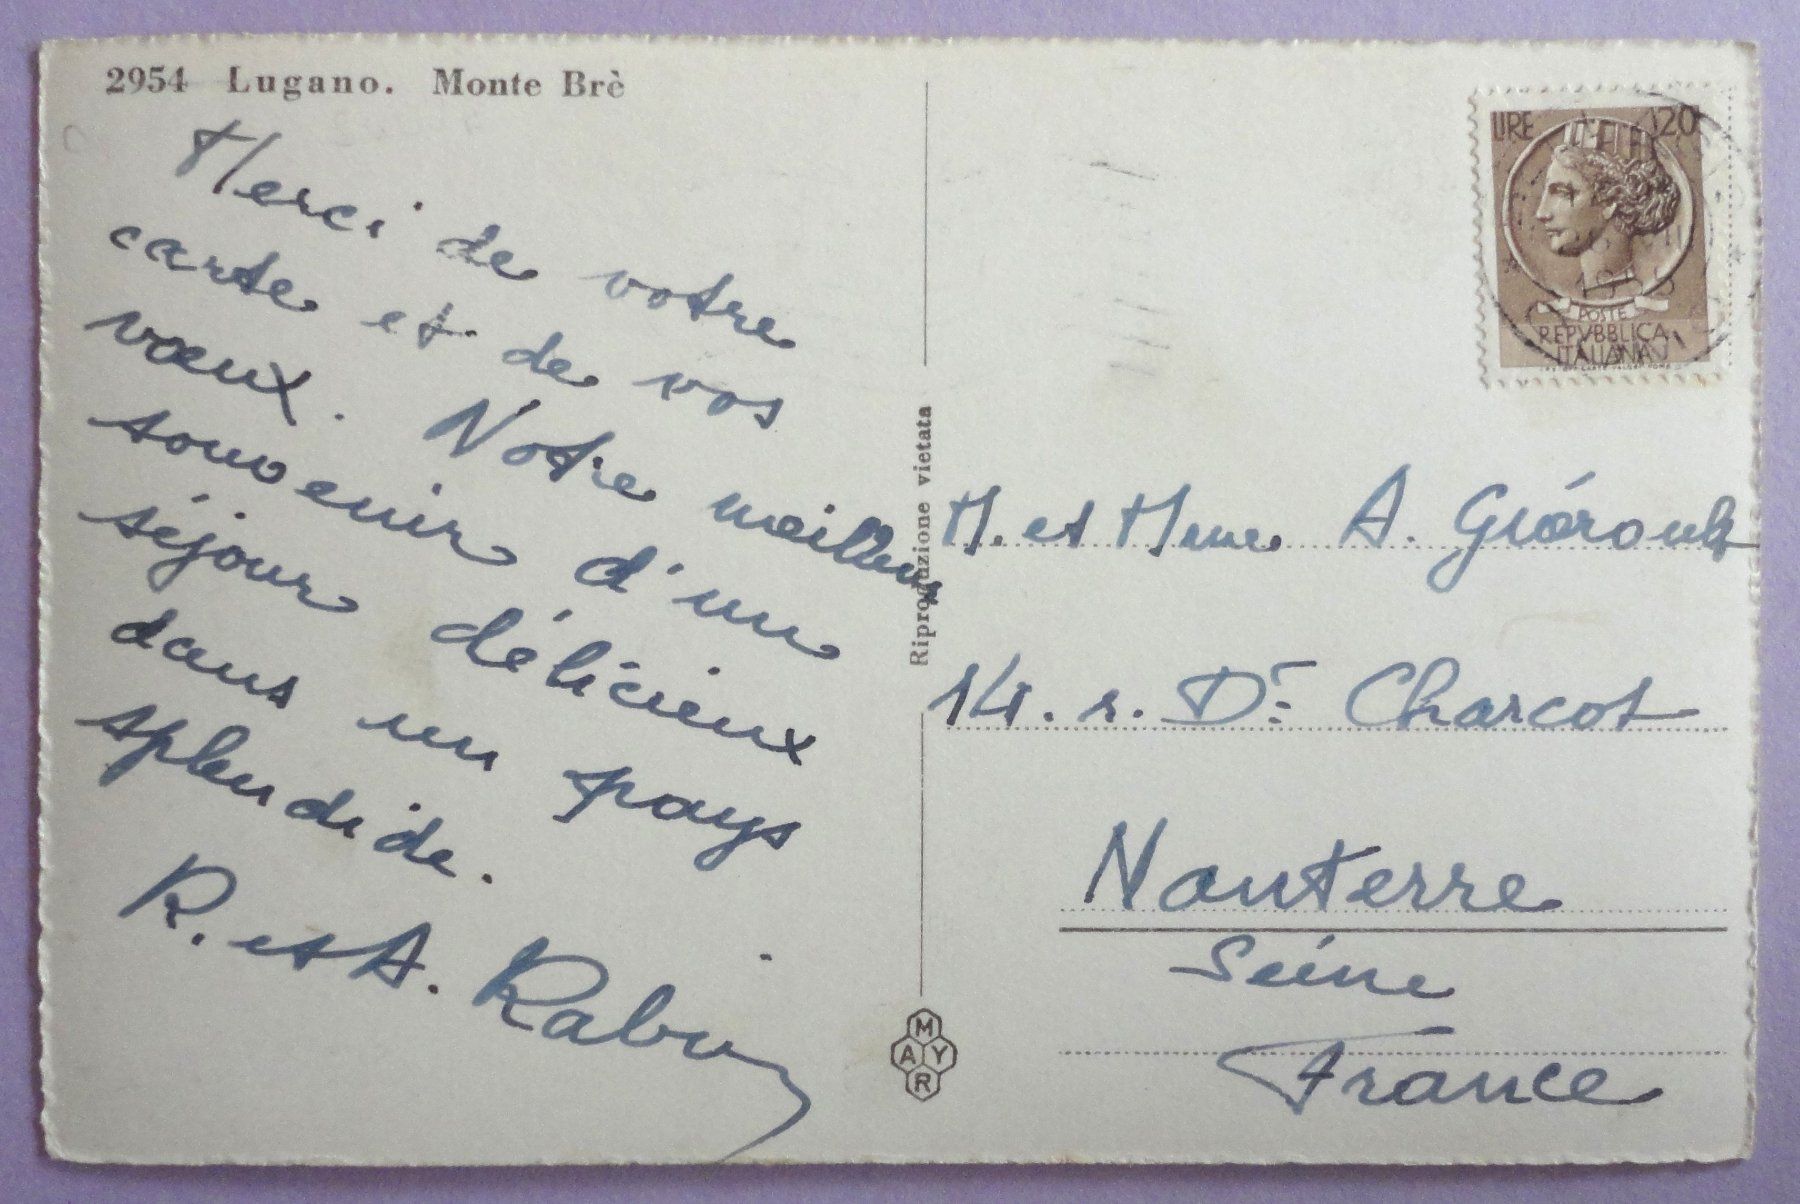 2954 Lugano. Monte Brè
Merci de votre
carte et de vos
vœux. Notre meilleur
souvenir d'un
séjour délicieux
dans un pays
splendide.
R. et A.
Riproduzione vietata
MAYR
LIRE 20
ITALIA
POSTE
REPVBBLICA
ITALIANA
M. et Mme A.
14. r. Dr Charcot
Nanterre
Seine
France